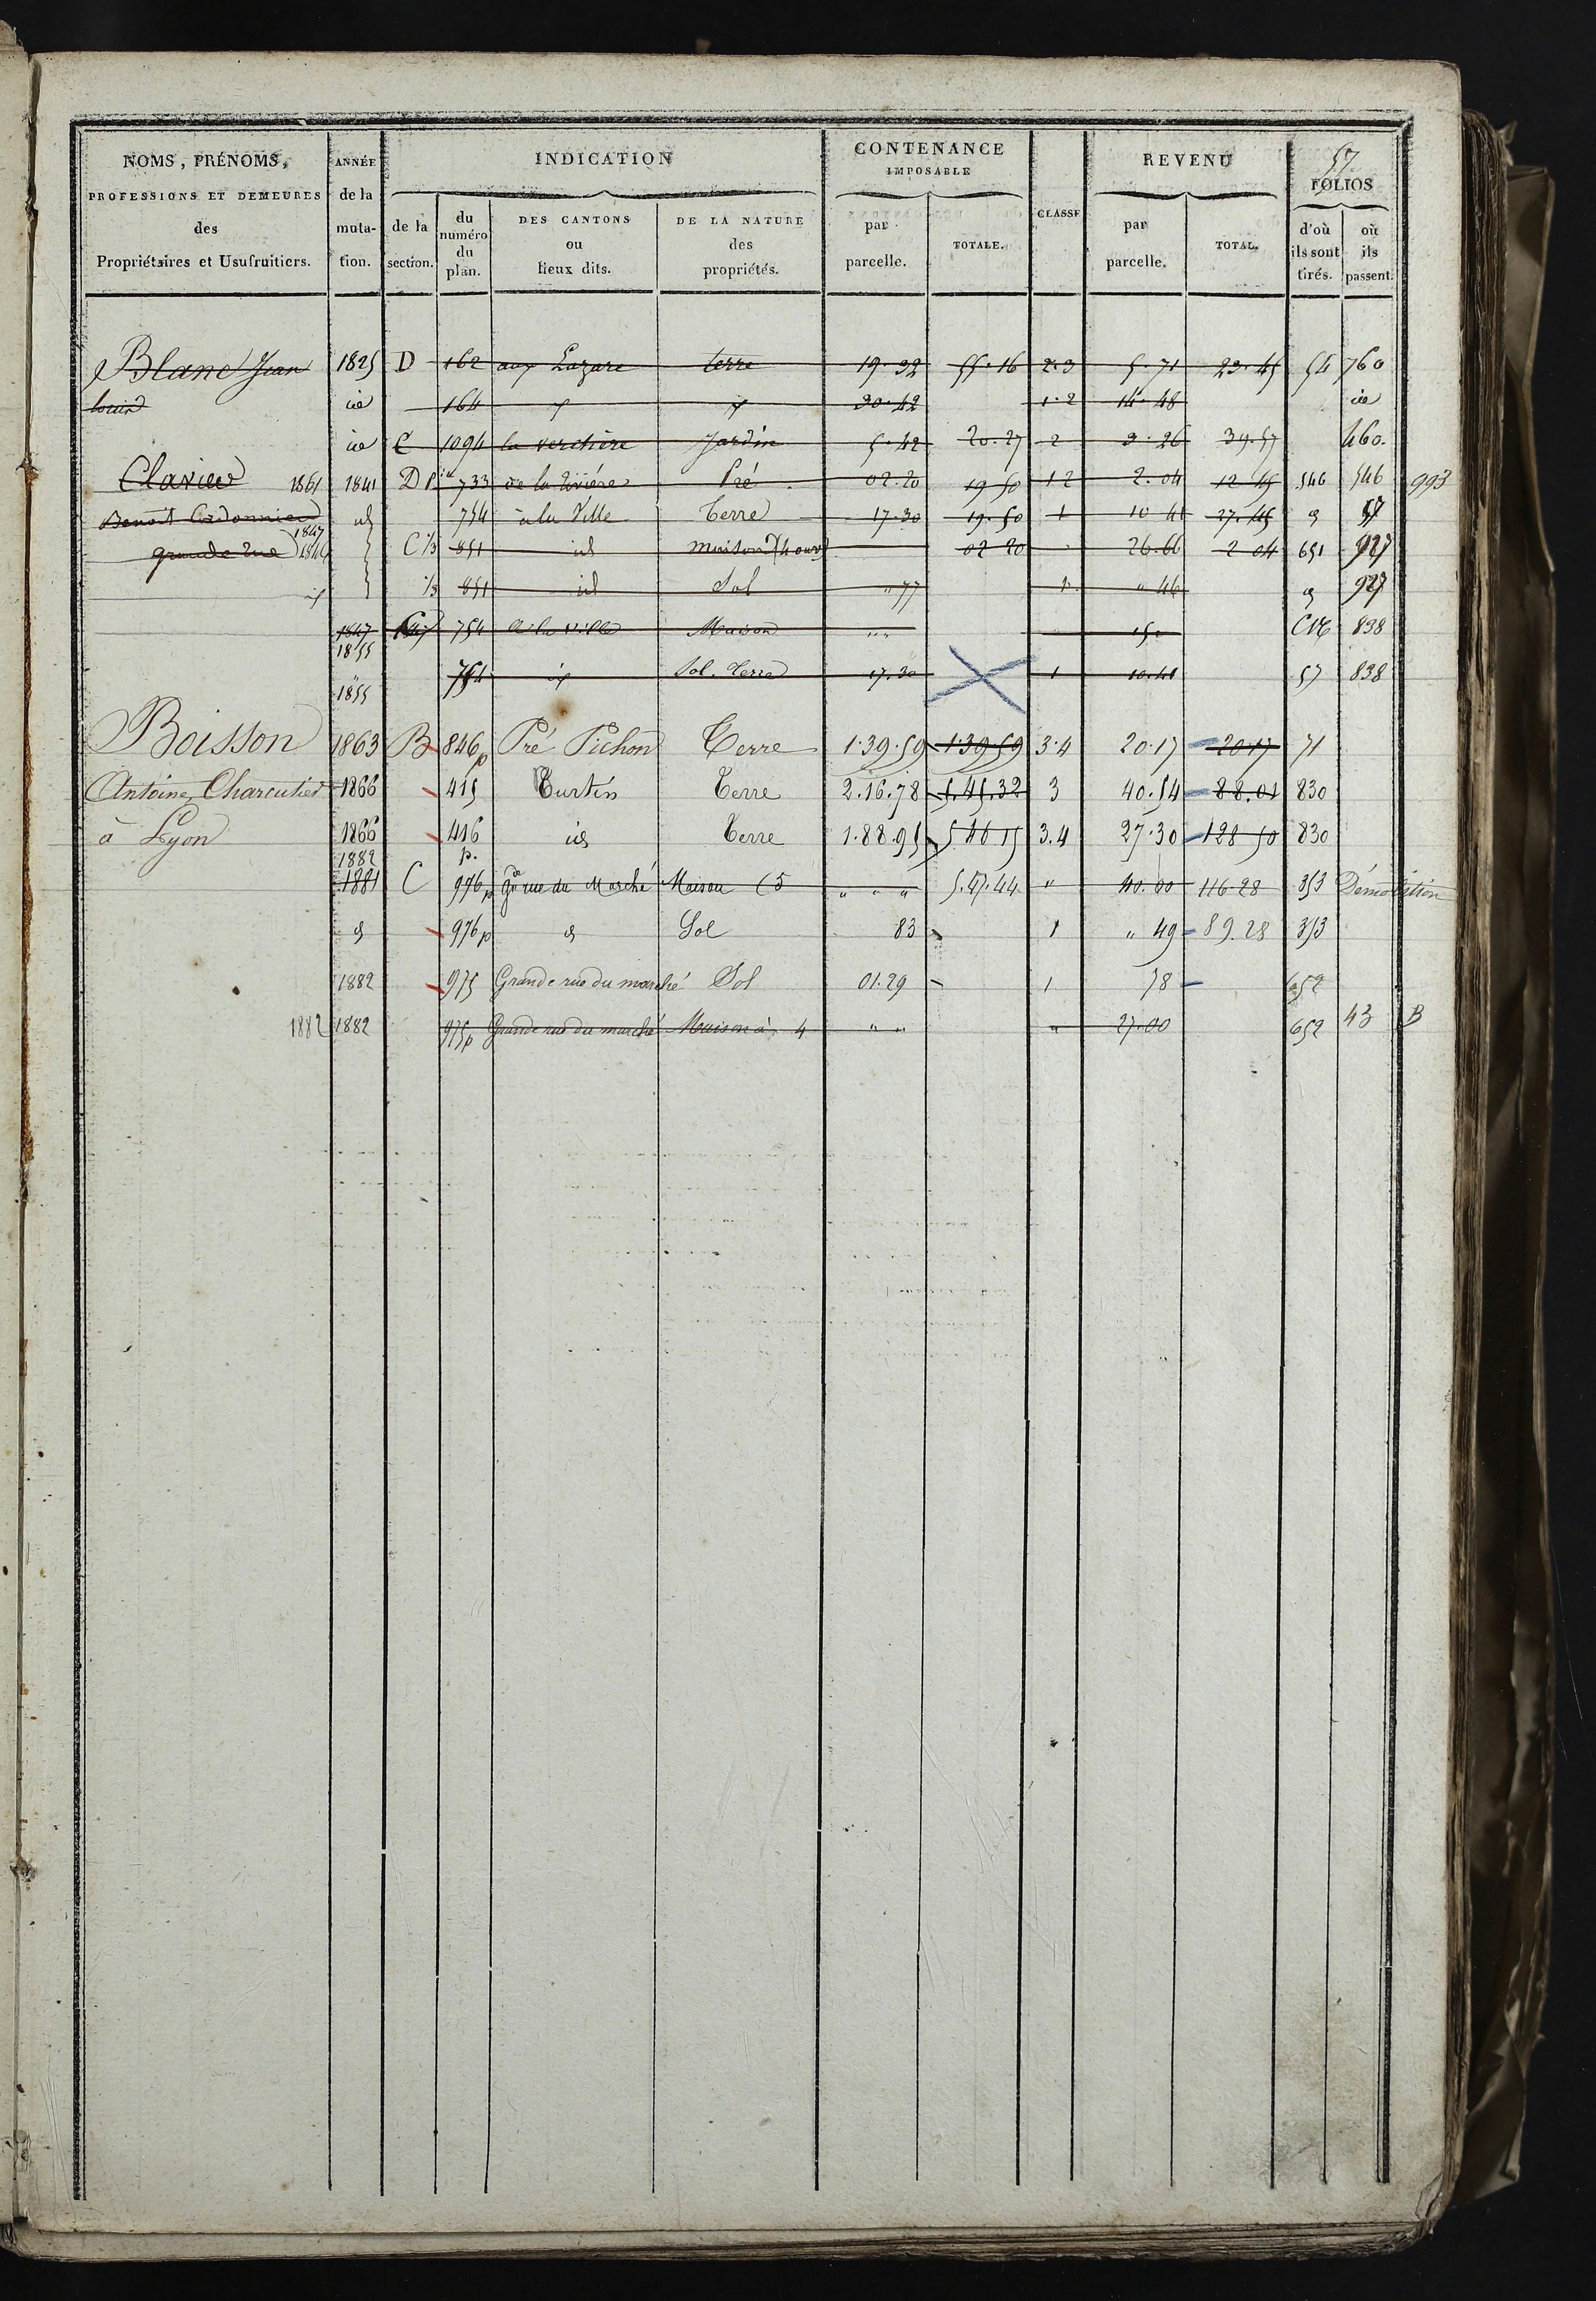 57
NOMS, PRÉNOMS, PROFESSIONS ET DEMEURES des Propriétaires et Usufruitiers.
ANNÉE de la muta-tion.
INDICATION
de la section.
du numéro du plan.
DES CANTONS ou lieux dits.
DE LA NATURE des propriétés.
CONTENANCE IMPOSABLE
par parcelle.
TOTALE.
CLASSE
REVENU
par parcelle.
TOTAL.
FOLIOS
d'où ils sont tirés.
où ils passent.
Blanc Jean 1825 D 162 aux Lazare terre 19.32 55.16 2.3 5.71 23.45 54 760
louis id 164 30.42 1.2 14.48 id
id C 1094 la verchère Jardin 5.42 20.27 2 3.26 39.57 460.
Clavier 1861 1841 D P 733 de la Rivière Pré 02.20 19 50 1 2 2.04 12 45 546 546 993
Benoit Cordonnier id 754 à la Ville Terre 17.30 19.50 1 10 41 27.45 57
grande Rue 1847 C 1/3 851 id maison (4 ouv) 02 20 26.66 2 04 651 927
1/3 851 id Sol " 77 1 " 46 927
1847 1855 754 à la ville Maison " " 15. CNE 838
1855 754 Sol. Terre 17.30 1 10.41 57 838
Boisson 1863 B 846p Pré Pichon Terre 1.39.59 1.39.59 3.4 20.17 20.17 71
Antoine, Charcutier 1866 415 Curtin Terre 2.16.78 5.45.32 3 40.54 88.01 830
à Lyon 1866 416 p. id Terre 1.88.95 5 46 15 3.4 27.30 128 50 830
1882
1881 C 976p Gde rue du Marché Maison (5 " " " 5.47.44 " 40.00 116.28 353 Démolition
976p Sol 83 1 " 49 89.28 353
1882 975 Grande rue du marché Sol 01.29 1 78 652
1882 1882 975p Grande rue du marché Maison à 4 " " " 27.00 652 43 B